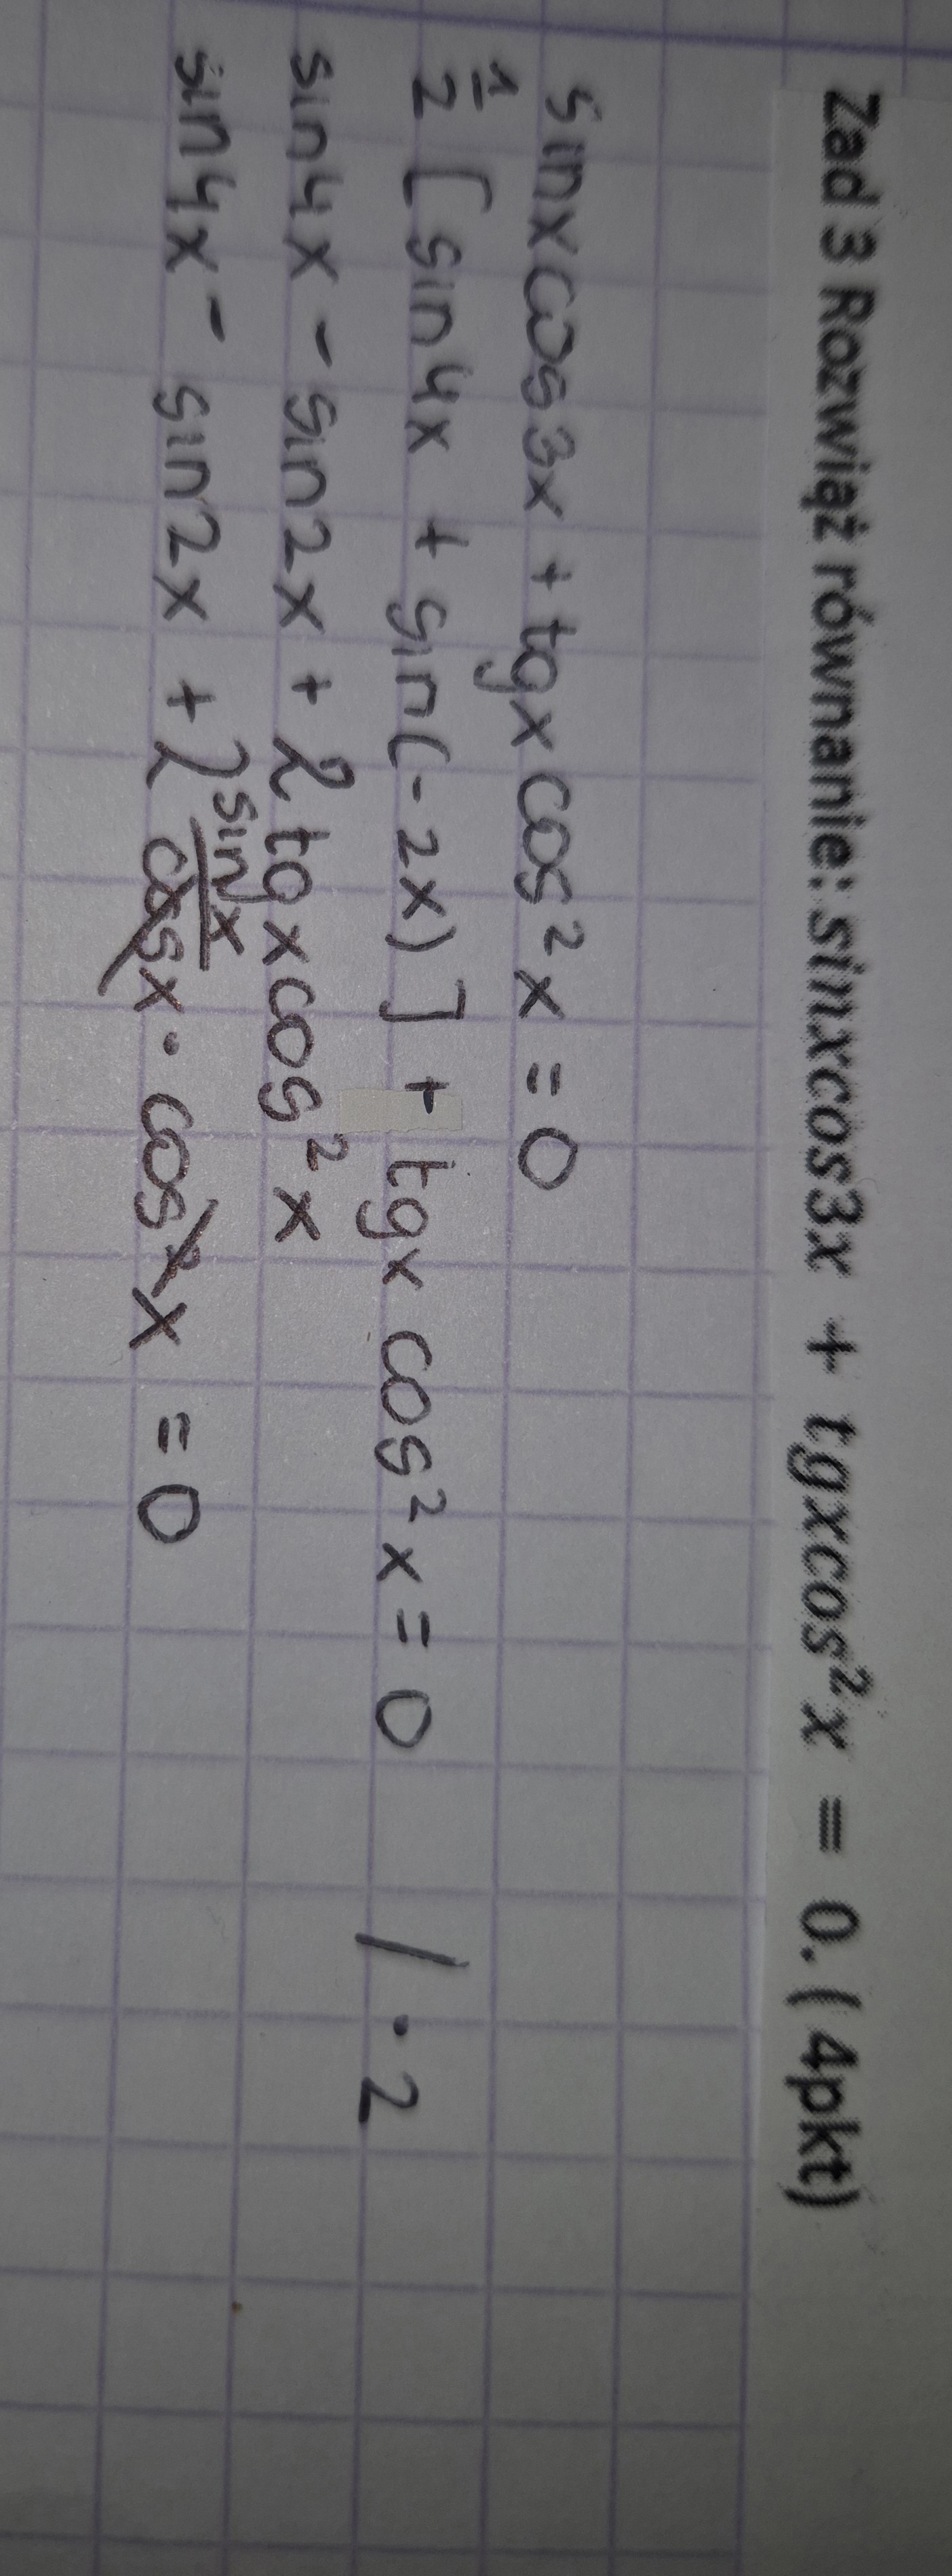 Zad 3 Rozwiąż równanie: sinxcos3x + tgxcos²x = 0. ( 4pkt)
sinxcos3x + tgx cos²x = 0
1/2 [sin4x + sin(-2x)] + tgx cos²x = 0 / · 2
sin4x - sin2x + 2tgxcos²x
sin4x - sin2x + 2 sinx/cosx · cos²x = 0